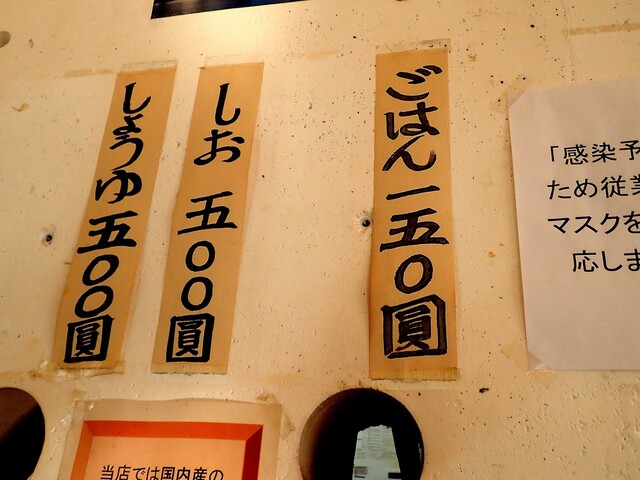 ごはん一五〇圓
しお 五〇〇圓
しょうゆ五〇〇圓
「感染予
ため従業
マスクを
応しま
当店では国内産の